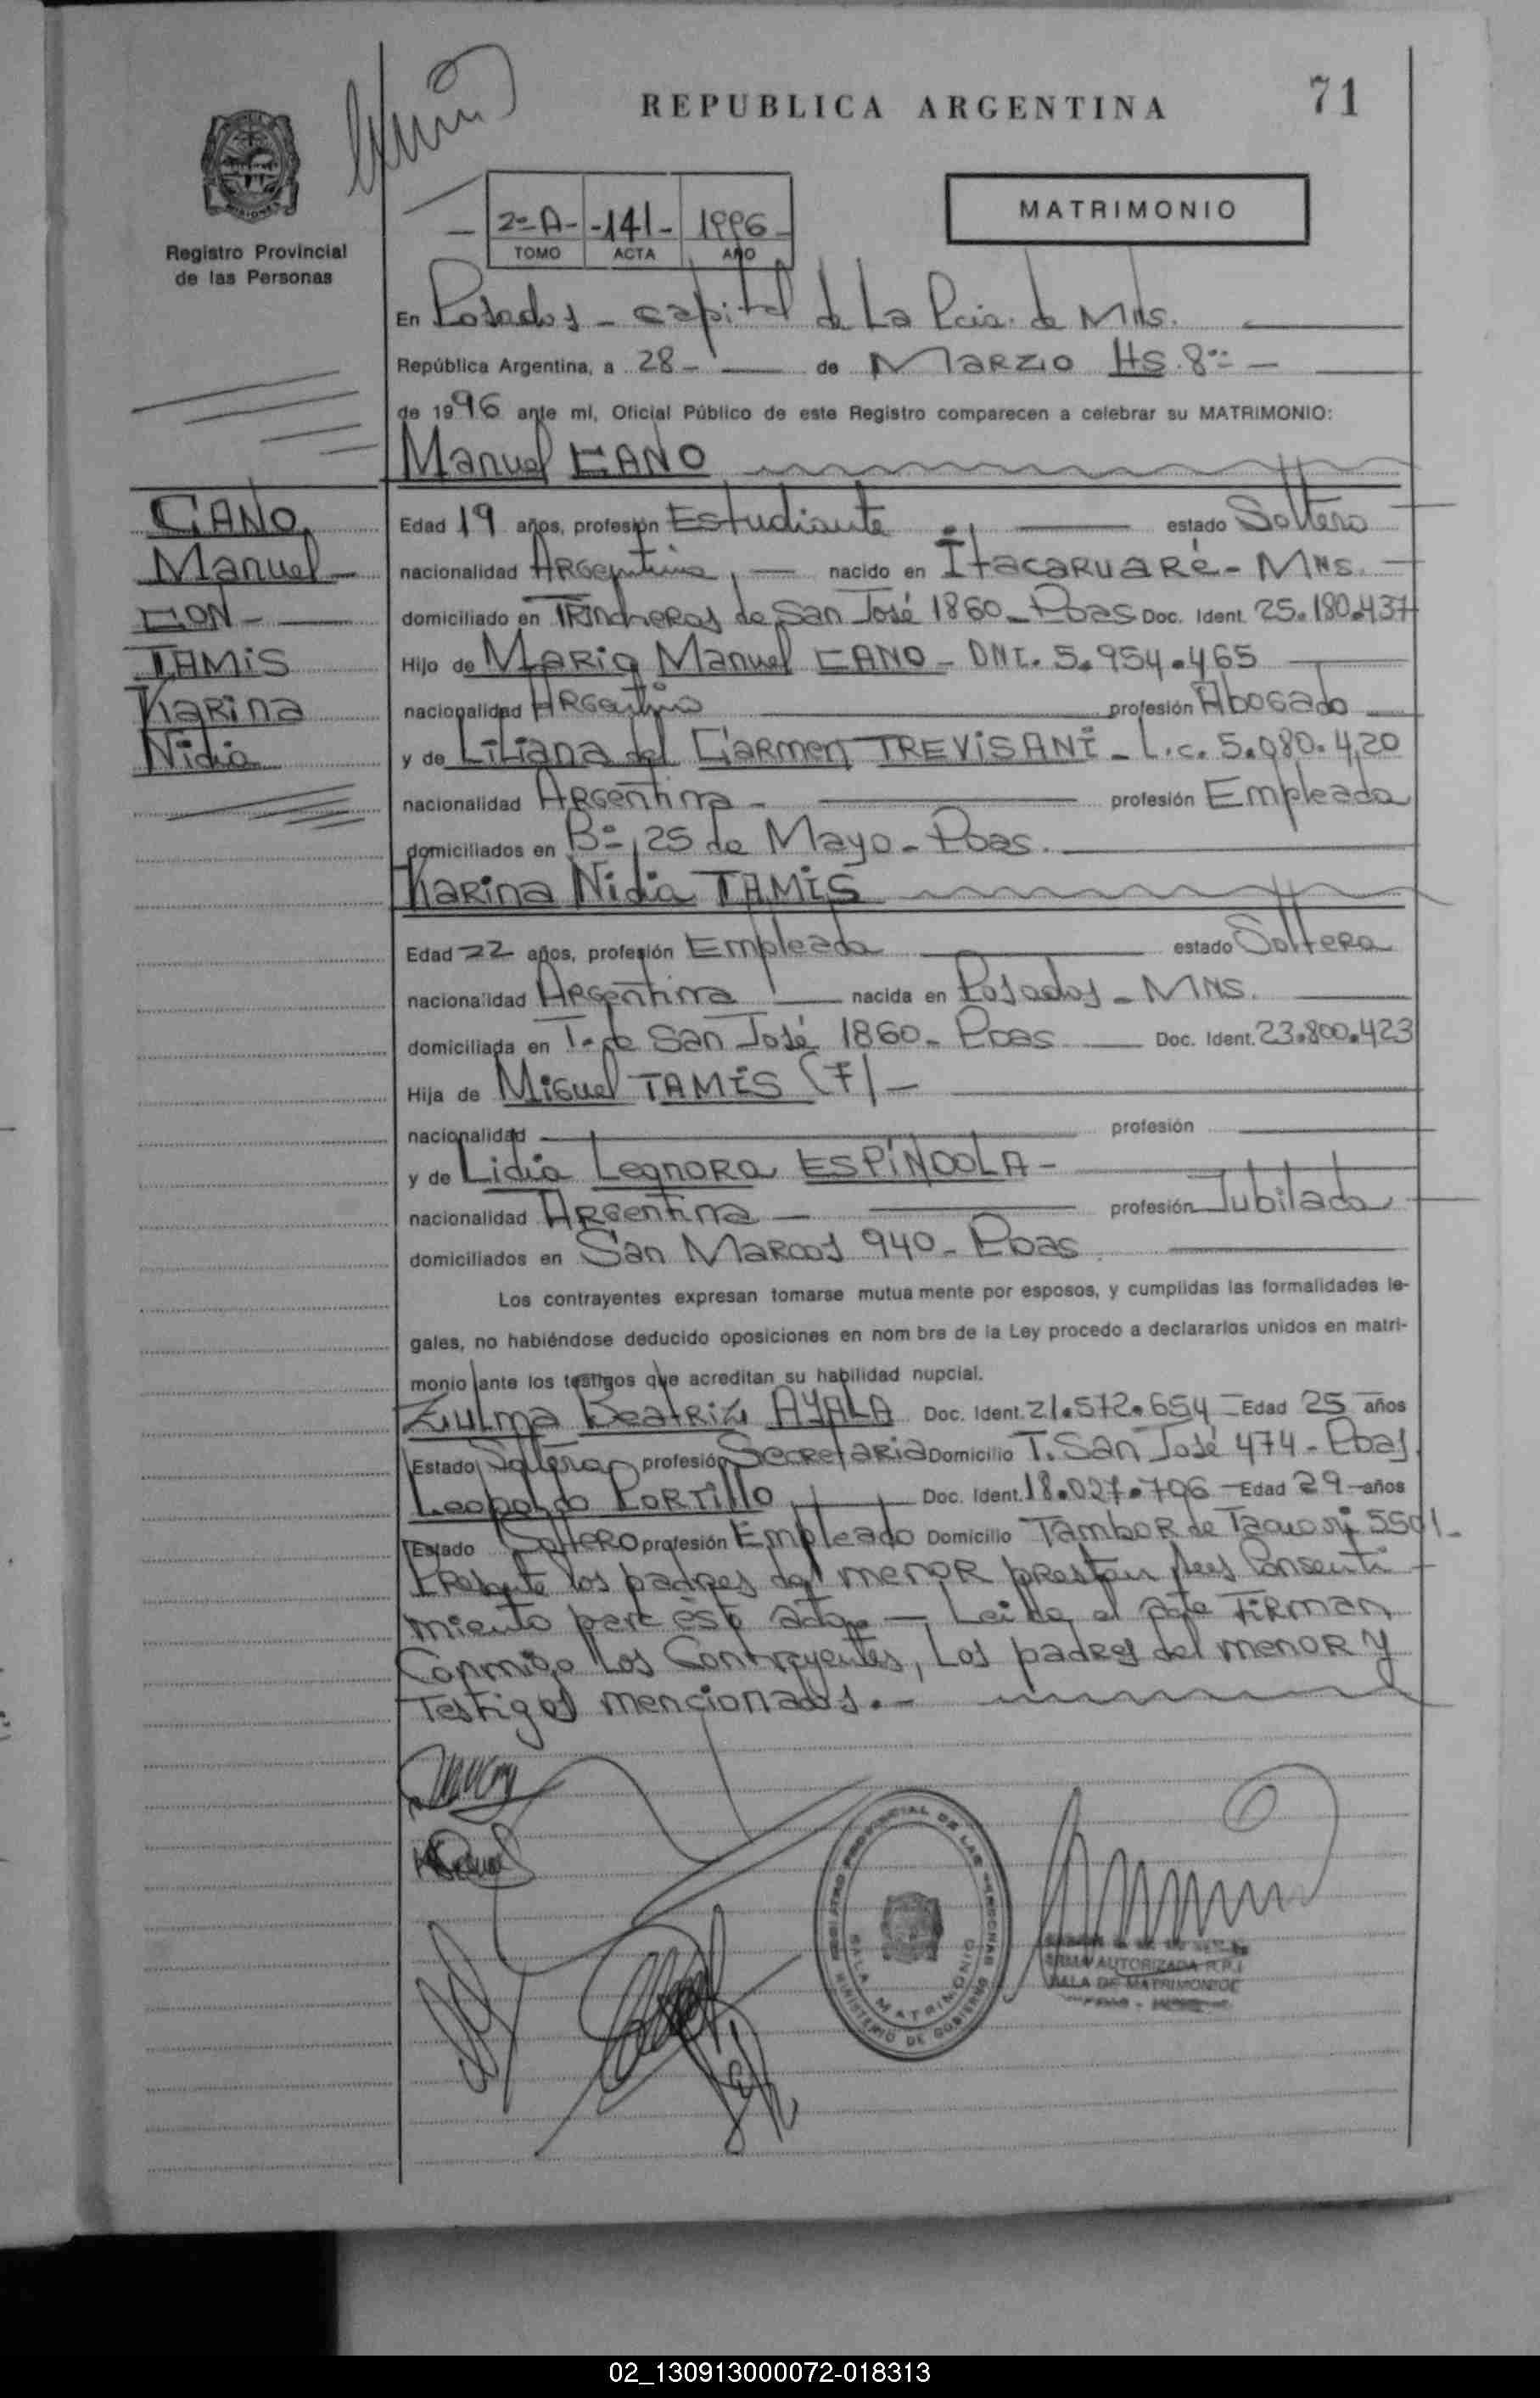 REPUBLICA ARGENTINA
71
MATRIMONIO
Registro Provincial
de las Personas
2º A - -141- 1996-
TOMO ACTA AÑO
En Posadas - capital de La Pcia. de Mns.
República Argentina, a 28 - de MARZO HS. 8:
de 1996 ante mí, Oficial Público de este Registro comparecen a celebrar su MATRIMONIO:
Manuel CANO
CANO,
Manuel -
CON -
TAMIS
Karina
Nidia
Edad 19 años, profesión Estudiante estado Soltero
nacionalidad Argentina, nacido en Itacaruaré - Mns.
domiciliado en Trincheras de San José 1860 - Pdas Doc. Ident. 25.180.437
Hijo de Mario Manuel CANO - DNI. 5.954.465
nacionalidad Argentino profesión Abogado
y de Liliana del Carmen TREVISANI - L.C. 5.080.420
nacionalidad Argentina - profesión Empleada
domiciliados en Bº 25 de Mayo - Pdas.
Karina Nidia TAMIS
Edad 22 años, profesión Empleada estado Soltera
nacionalidad Argentina nacida en Posadas - MNS.
domiciliada en T. de San José 1860 - Pdas Doc. Ident. 23.800.423
Hija de Miguel TAMIS (F) -
nacionalidad profesión
y de Lidia Leonora ESPÍNDOLA -
nacionalidad Argentina - profesión Jubilada
domiciliados en San Marcos 940 - Pdas
Los contrayentes expresan tomarse mutua mente por esposos, y cumplidas las formalidades le-
gales, no habiéndose deducido oposiciones en nom bre de la Ley procedo a declararlos unidos en matri-
monio ante los testigos que acreditan su habilidad nupcial.
Zulma Beatriz AYALA Doc. Ident. 21.572.654 - Edad 25 años
Estado Soltera profesión Secretaria Domicilio T. San José 474 - Pdas.
Leopoldo PORTILLO Doc. Ident. 18.027.796 - Edad 29 - años
Estado Soltero profesión Empleado Domicilio Tambor de Tacuarí 5501 -
Presente los padres del menor prestan sus Consenti
miento para éste acto. - Leida el acta Firman
Conmigo los Contrayentes, Los padres del menor y
Testigos mencionados. -
REGISTRO PROVINCIAL DE LAS PERSONAS
SALA MATRIMONIO
MINISTERIO DE GOBIERNO
FIRMA AUTORIZADA R.P.
SALA DE MATRIMONIOS
02_130913000072-018313